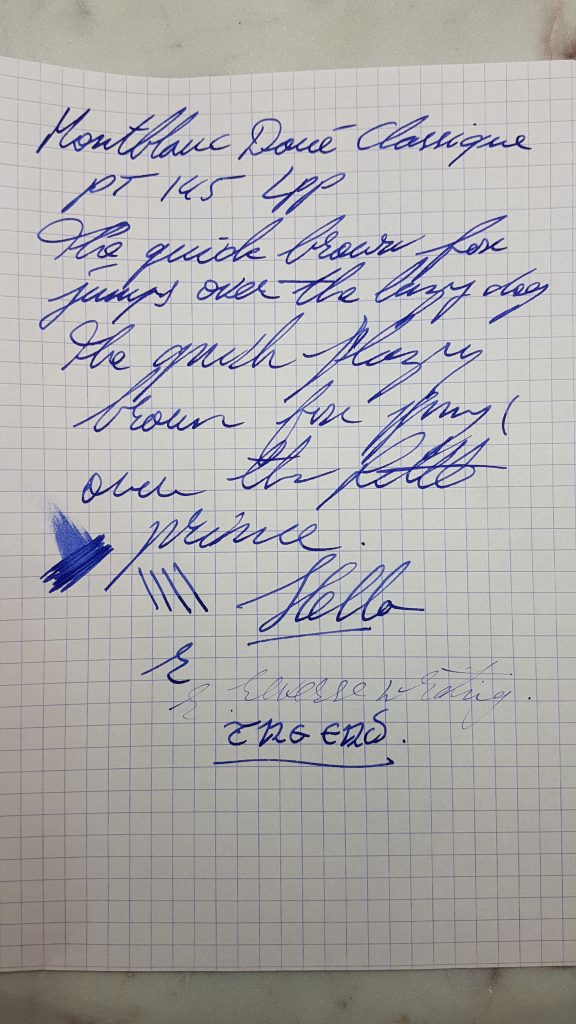 Montblanc Doué Classique
PT 145 LPP
The quick brown fox
jumps over the lazy dog
The quick
brown fox jumps
over the petit
prince.
Hello
r
r reverse writing.
THE END.